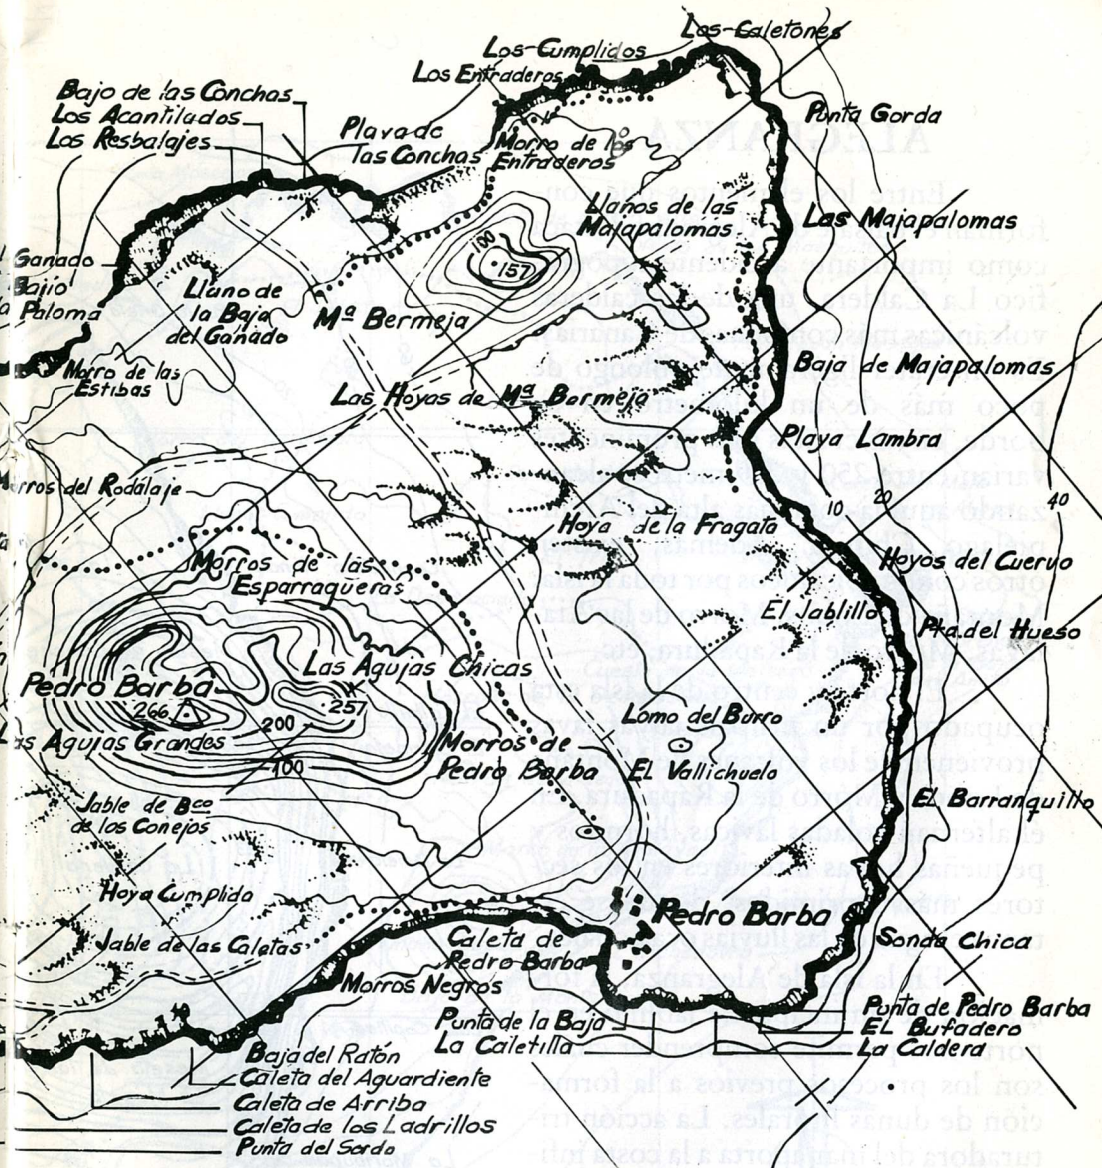 Los-Caletones
Los-Cumplidos
Los Entraderos
Bajo de las Conchas
Los Acantilados
Los Resbalajes
Playa de
las Conchas
Morro de los
Entraderos
Punta Gorda
Llanos de las
Majapalomas
Las Majapalomas
100
157
Ganado
Bajio
Paloma
Llano de
la Baja
del Ganado
Mª Bermeja
Morro de las
Estibas
Las Hoyas de Mª Bermeja
Baja de Majapalomas
Playa Lambra
10
20
40
Morros del Rodalaje
Hoya de la Fragata
Hoyos del Cuervo
Morros de las
Esparragueras
El Jablillo
Pta. del Hueso
Las Agujas Chicas
Pedro Barba
266
257
200
100
Las Agujas Grandes
Lomo del Burro
Morros de
Pedro Barba
El Vallichuelo
El Barranquillo
Jable de Bco
de los Conejos
Hoya Cumplida
Pedro Barba
Jable de las Caletas
Caleta de
Pedro Barba
Sonda Chica
Morros Negros
Punta de la Baja
La Caletilla
Punta de Pedro Barba
El Bufadero
La Caldera
Baja del Ratón
Caleta del Aguardiente
Caleta de Arriba
Caleta de los Ladrillos
Punta del Sordo